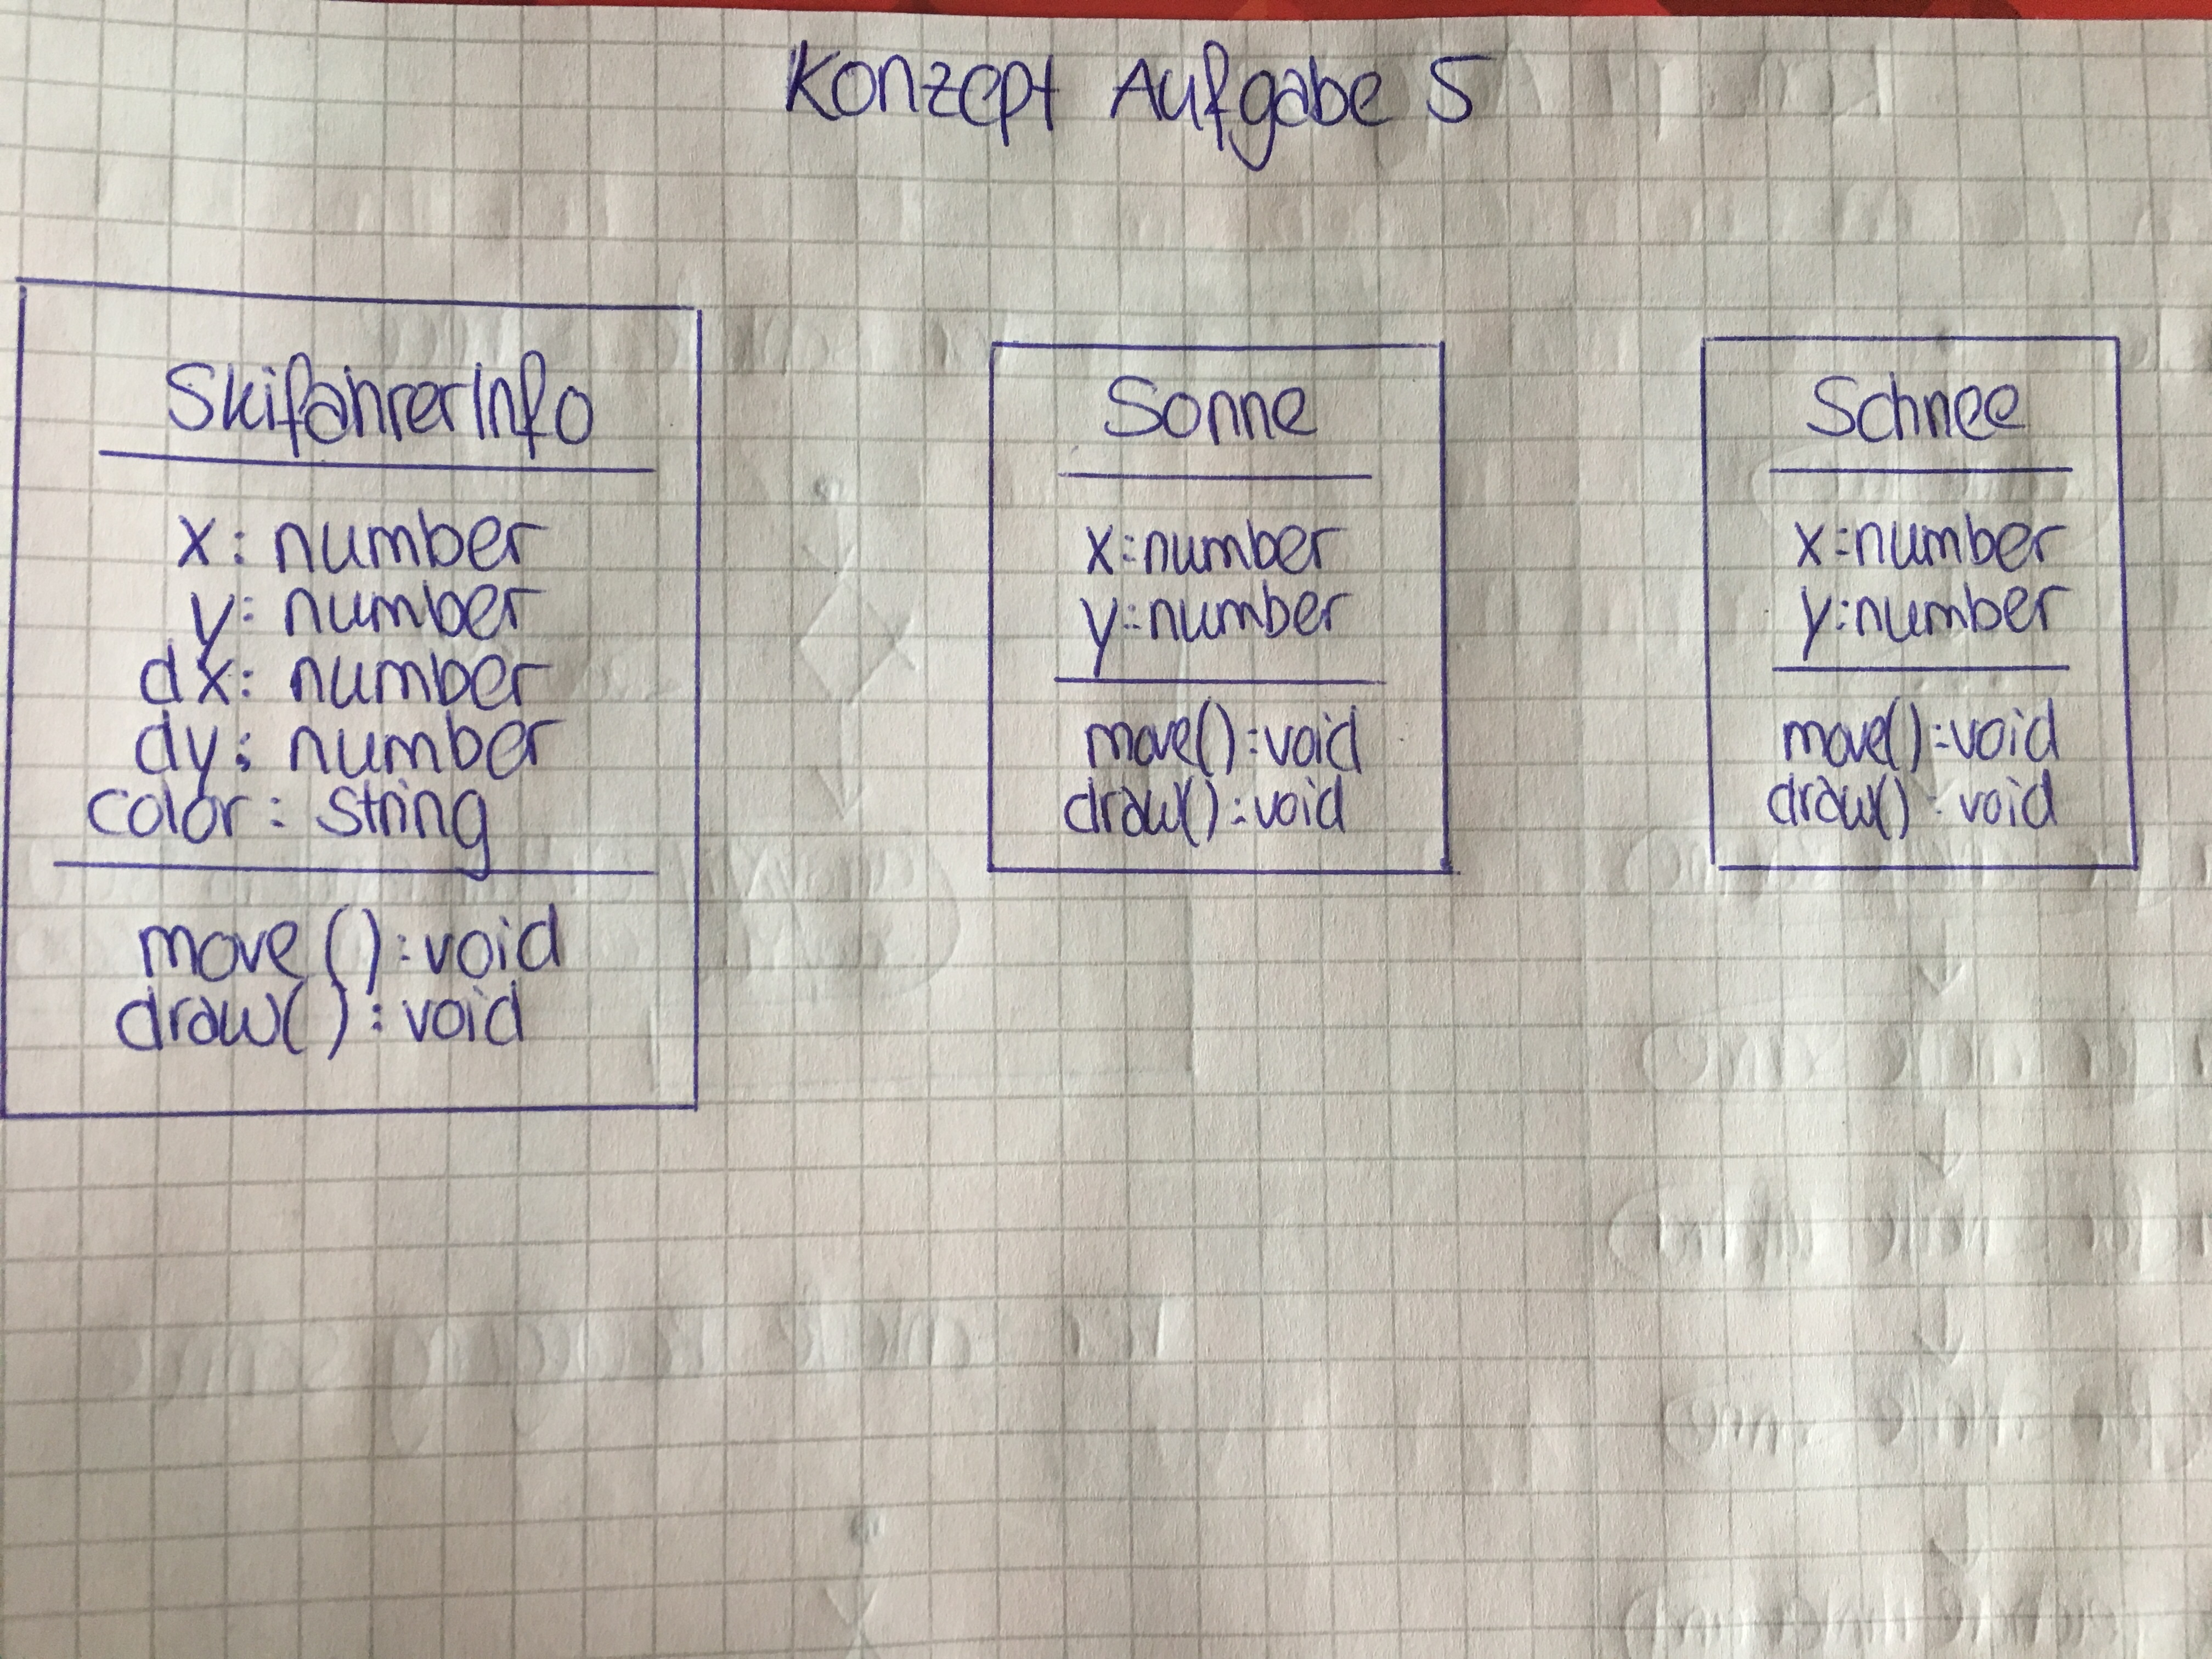 Konzept Aufgabe 5
SkifahrerInfo
x: number
y: number
dx: number
dy: number
color: string
move(): void
draw(): void
Sonne
x: number
y: number
move(): void
draw(): void
Schnee
x: number
y: number
move(): void
draw(): void